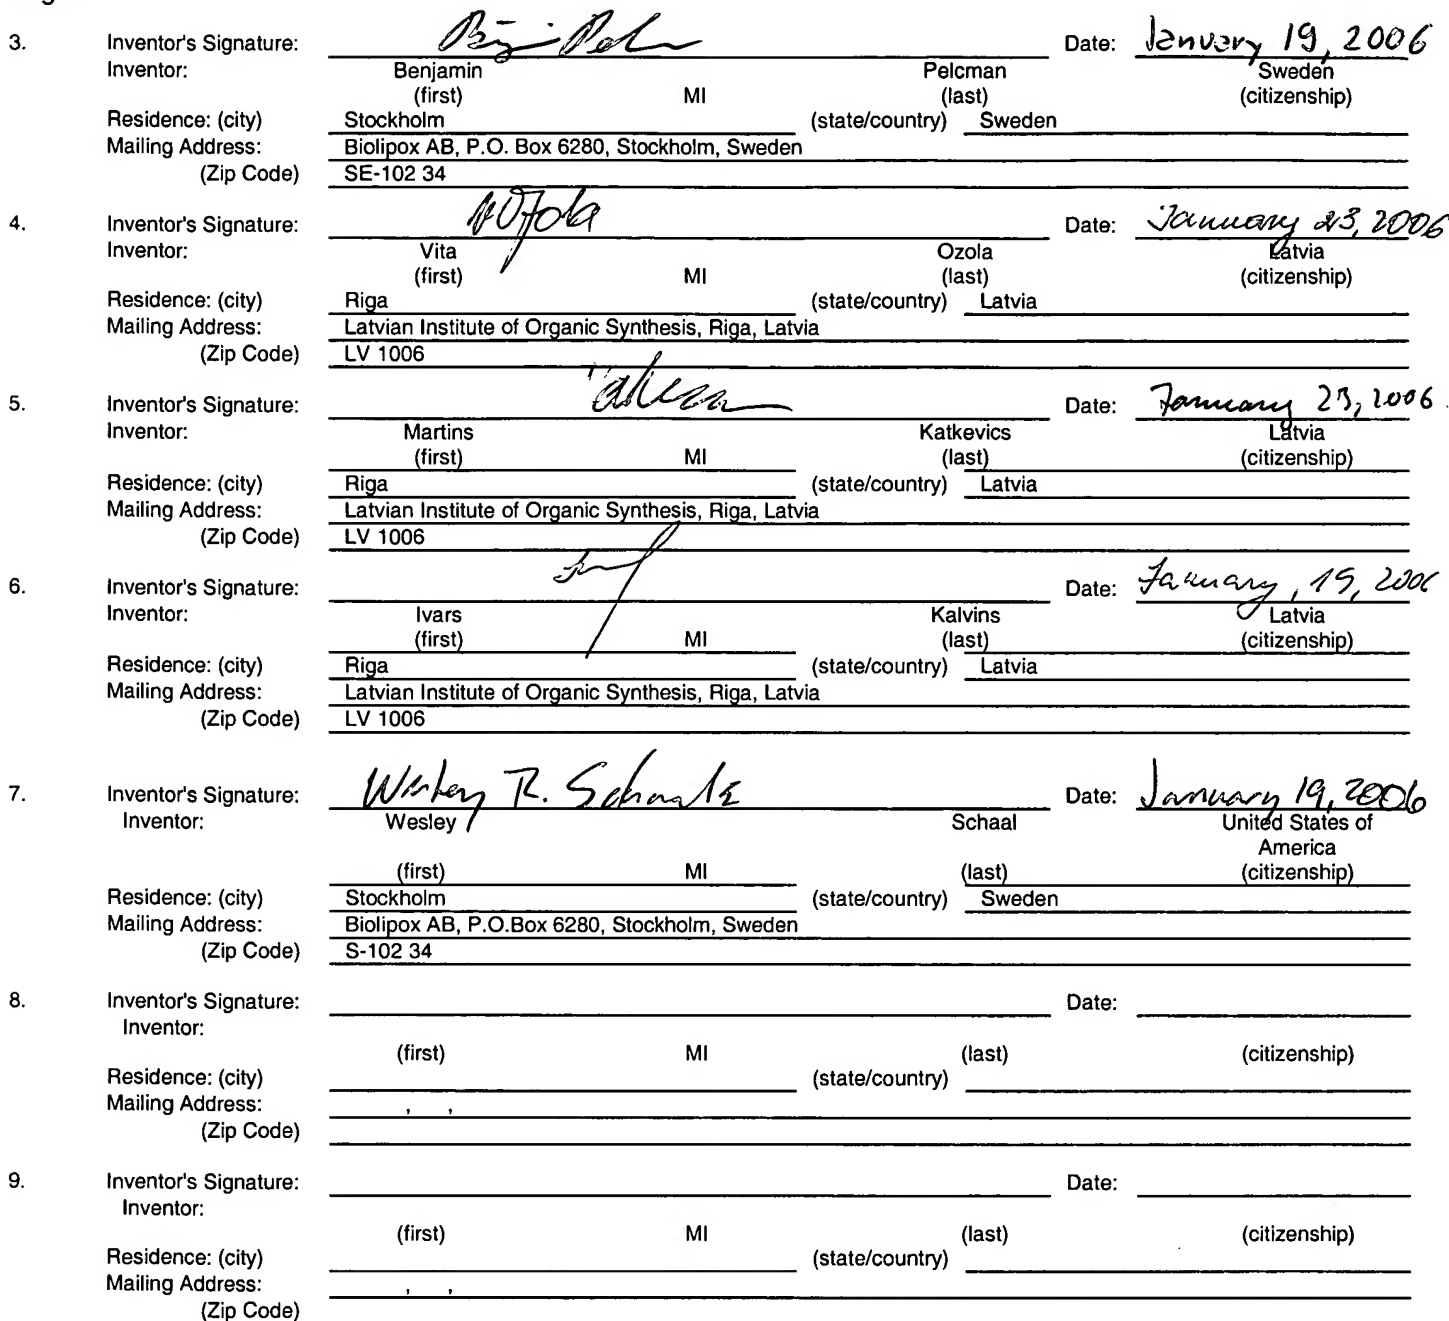 3. Inventor's Signature: Date: January 19, 2006
Inventor: Benjamin Pelcman Sweden
(first) MI (last) (citizenship)
Residence: (city) Stockholm (state/country) Sweden
Mailing Address: Biolipox AB, P.O. Box 6280, Stockholm, Sweden
(Zip Code) SE-102 34
4. Inventor's Signature: VOzola Date: January 23, 2006
Inventor: Vita Ozola Latvia
(first) MI (last) (citizenship)
Residence: (city) Riga (state/country) Latvia
Mailing Address: Latvian Institute of Organic Synthesis, Riga, Latvia
(Zip Code) LV 1006
5. Inventor's Signature: Date: January 23, 2006
Inventor: Martins Katkevics Latvia
(first) MI (last) (citizenship)
Residence: (city) Riga (state/country) Latvia
Mailing Address: Latvian Institute of Organic Synthesis, Riga, Latvia
(Zip Code) LV 1006
6. Inventor's Signature: Date: January, 19, 2006
Inventor: Ivars Kalvins Latvia
(first) MI (last) (citizenship)
Residence: (city) Riga (state/country) Latvia
Mailing Address: Latvian Institute of Organic Synthesis, Riga, Latvia
(Zip Code) LV 1006
7. Inventor's Signature: Wesley R. Schaal Date: January 19, 2006
Inventor: Wesley Schaal United States of
America
(first) MI (last) (citizenship)
Residence: (city) Stockholm (state/country) Sweden
Mailing Address: Biolipox AB, P.O.Box 6280, Stockholm, Sweden
(Zip Code) S-102 34
8. Inventor's Signature: Date:
Inventor:
(first) MI (last) (citizenship)
Residence: (city) (state/country)
Mailing Address: , ,
(Zip Code)
9. Inventor's Signature: Date:
Inventor:
(first) MI (last) (citizenship)
Residence: (city) (state/country)
Mailing Address: , ,
(Zip Code)